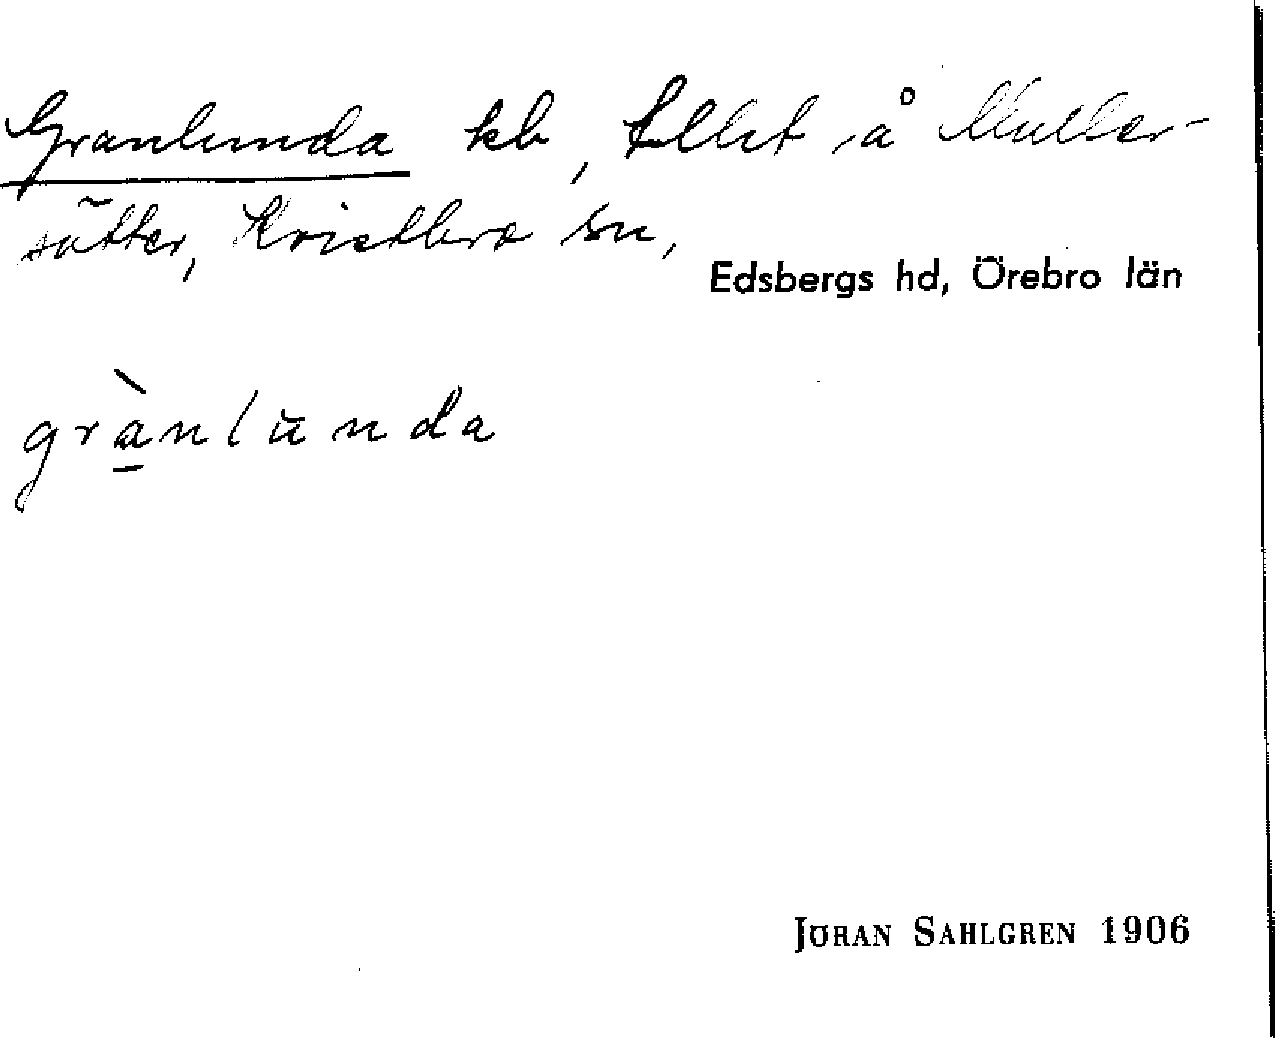 Granlunda kb, f. llht å Muller-
sätter, Kvistbro sn,
Edsbergs hd, Örebro län
grànlŭnda
JÖRAN SAHLGREN 1906